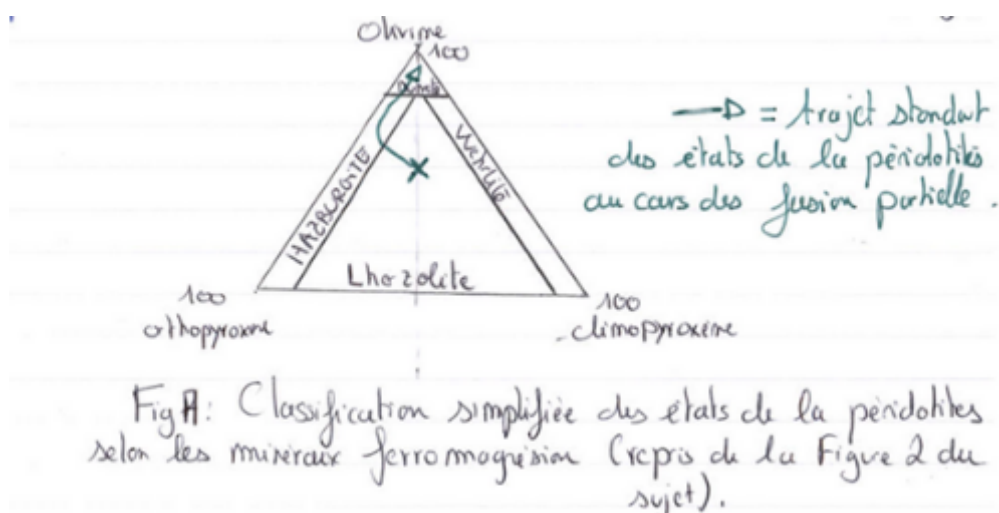 Olivine
100
Dunite
HAZBURGITE
Wehrlite
Lherzolite
100
orthopyroxène
100
clinopyroxène
= trajet standart
des états de la péridotites
au cours des fusion partielle.
Fig A: Classification simplifiée des états de la péridotites
selon les minéraux ferromagnésien (repris de la Figure 2 du
sujet).